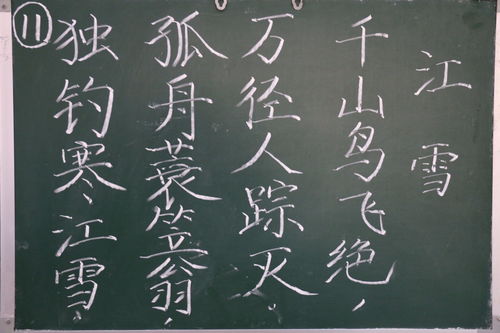 江雪
千山鸟飞绝，
万径人踪灭。
孤舟蓑笠翁，
独钓寒江雪。
11